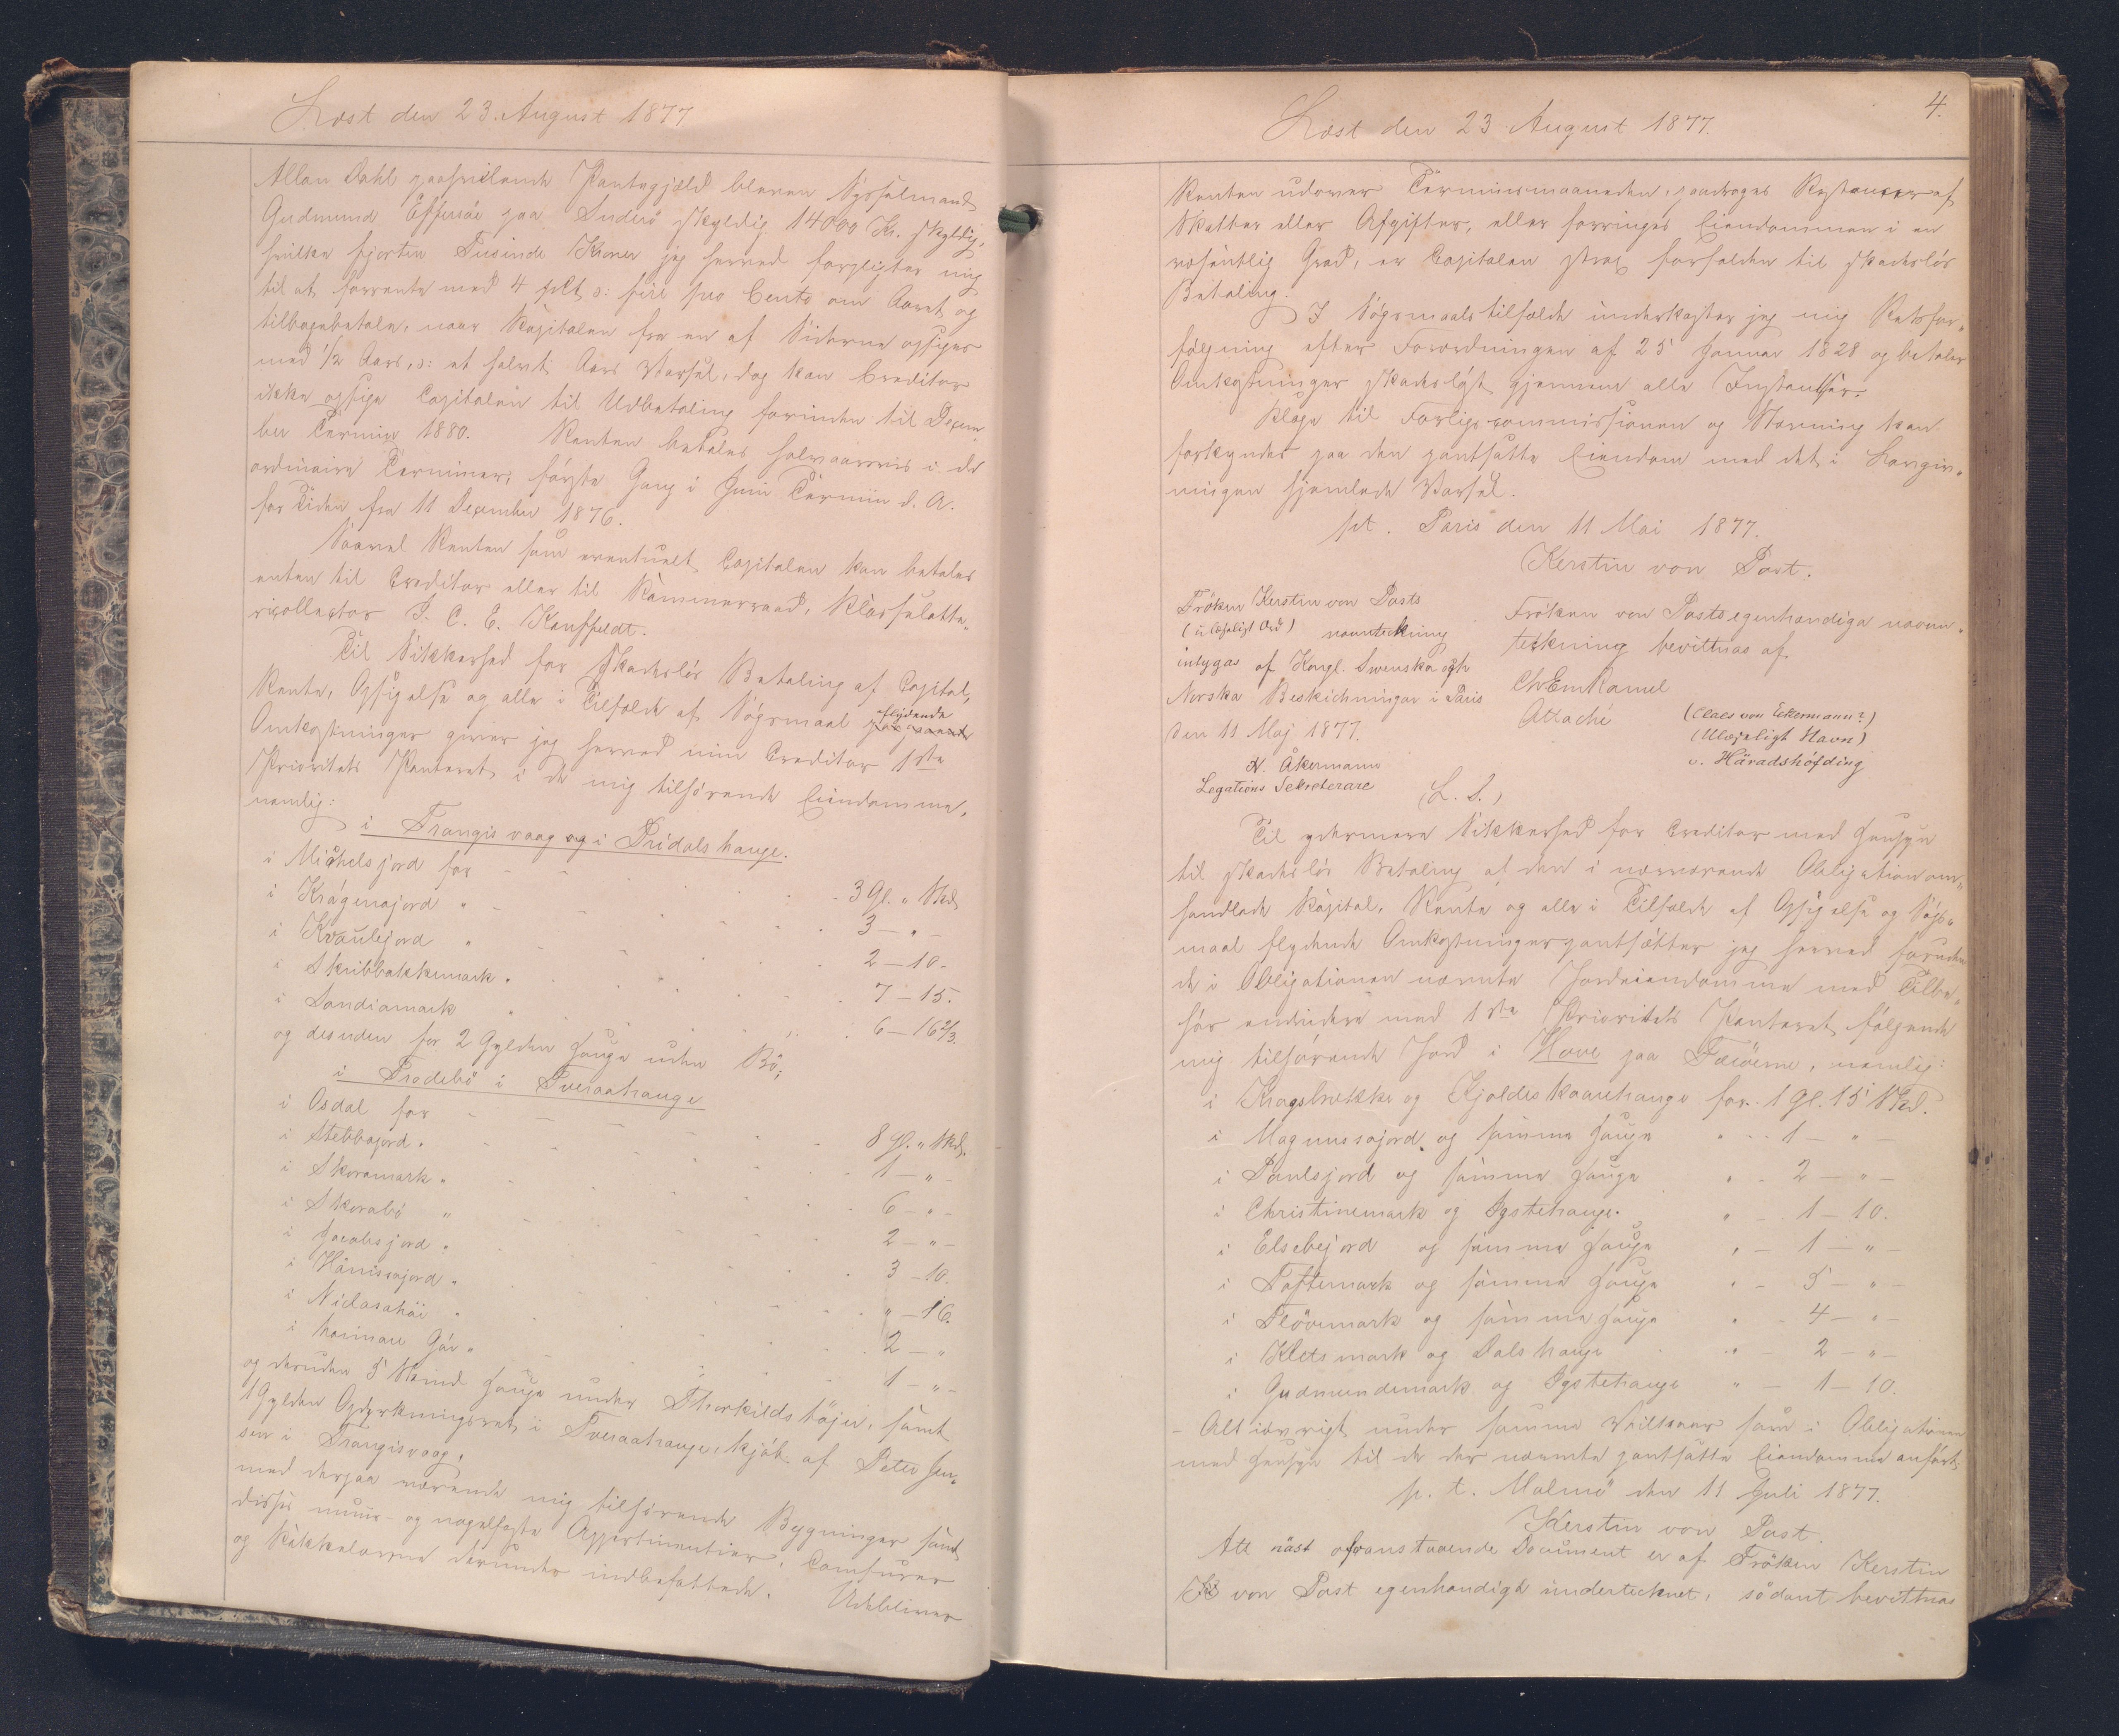 Læst den 23. August 1877
Allan Dahl paahvilende Pantegjæld bleven Sysselmand
Gudmund Effersøe paa Suderö skyldig 14000 Kr. skyldig,
hvilke fjorten Tusinde Kroner jeg herved forpligter mig
til at forrente med 4 pCt ɔ: fire pro Cento om Aaret og
tilbagebetale, naar Kapitalen fra en af Siderne opsiges
med 1/2 Aars, ɔ: et halvt Aars Varsel, dog kan Creditor
ikke opsige Capitalen til Udbetaling forinden til Decem
ber Termin 1880. Renten betales halvaarsvis i de
ordinaire Terminer, første Gang i Juni Termin d. A.
for Tiden fra 11 December 1876.
Saavel Renten som eventuelt Capitalen kan betales
enten til Creditor eller til Kammerraad, Klasselotte-
ricollector P. C. E. Kauffeldt.
Til Sikkerhed for skadesløs Betaling af Capital,
Rente, Opsigelse og alle i Tilfælde af Søgsmaal flydende
Omkostninger giver jeg herved min Creditor 1ste
Prioritets Panteret i de mig tilhørende Eiendomme,
nemlig:
i Trangisvaag og i Pridalshauge.
i Michelsjord for - - 3 Gl. " Skd
i Krágenajord " - - 3 - " -
i Kvaulejord " - - 2 - 10 -
i Skribbakkemark " 7 - 15.
i Sandiamark " 6 - 16 2/3.
og desuden for 2 Gylden Hauge uden Bø;
i Frodebö i Tveraahauge
i Osdal for - - 8 Gl. " Skd.
i Stebbajord " 1 - " -
i Skoramark " 6 - " -
i Skorabö " 2 - " -
i Jacobsjord " 3 - 10.
i Hánissajord " " - 16.
i Niclasahöi " 2 - "
i hoinare Gár " 1 - " -
og desuden 5 Skind Hauge under Thorkilds höjer, samt
1 Gylden Opdyrkningsret i Tveraahauge, kjøbt af Peter Jen-
sen i Trangisvaag,
med derpaa værende mig tilhørende Bygninger samt
disses muur- og nagelfaste Appertinentier, Comfurer
og Kakkelovne derunder indbefattede. Udebliver
Læst den 23 August 1877.
4.
Renten udover Terminsmaaneden, paadrages Restancer af
Skatter eller Afgifter, eller forringes Eiendommen i en
væsentlig Grad, er Capitalen strax forfalden til skadesløs
Betaling.
I Søgsmaalstilfælde underkaster jeg mig Retsfor-
følgning efter Forordningen af 25 Januar 1828 og betaler
Omkostninger skadesløst gjennem alle Instantser.
Klage til Forligscommissionen og Stævning kan
forkyndes paa den pantsatte Eiendom med det i Lovgiv-
ningen hjemlede Varsel.
pt. Paris den 11 Mai 1877.
Kerstin von Post.
Fröken Kerstin von Posts
(ulæseligt Ord) navnteckning
intygas af Kongl. Swenska och
Norska Beskickningar i Paris
den 11 Maj 1877.
H. Åkermann
Legations Sekreterare
Fröken von Posts egenhändiga navn-
teckning bevittnas af
Chr Em Ramel
Attaché
(Claes von Eckermann?)
(Ulæseligt Navn)
v. Häradshöfding
(L. S.)
Til ydermere Sikkerhed for Creditor med Hensyn
til skadesløs Betaling af den i nærværende Obligation om-
handlede Kapital, Rente og alle i Tilfælde af Opsigelse og Søgs-
maal flydende Omkostninger pantsætter jeg herved foruden
de i Obligationen nævnte Jordeiendomme med Tilbe-
hør endvidere med 1ste Prioritets Panteret følgende
mig tilhørende Jord i Hove paa Færöerne, nemlig:
i Kragsbrekke og Gjoldeskaarehauge for 1 Gl. 15 Skd.
i Magnussajord og samme Hauge " - 1 - " -
i Poulsjord og samme Hauge " - 2 - " -
i Christinemark og Dystehauge " - 1 - 10.
i Elsebejord og samme Hauge " - 1 - " -
i Toftemark og samme Hauge " - 5 - " -
i Flövemark og samme Hauge " - 4 - " -
i Kletsmark og Dalshauge " - 2 - " -
i Gudmundemark og Dystehauge " - 1 - 10.
- Alt iøvrigt under samme Vilkaar som i Obligationen
med Hensyn til de der nævnte pantsatte Eiendomme anført.
p. t. Malmö den 11 Juli 1877.
Kerstin von Post.
Att näst ofvanstaaende Document er af Fröken Kerstin
von Post egenhändigt undertecknet, sådant bevittnas